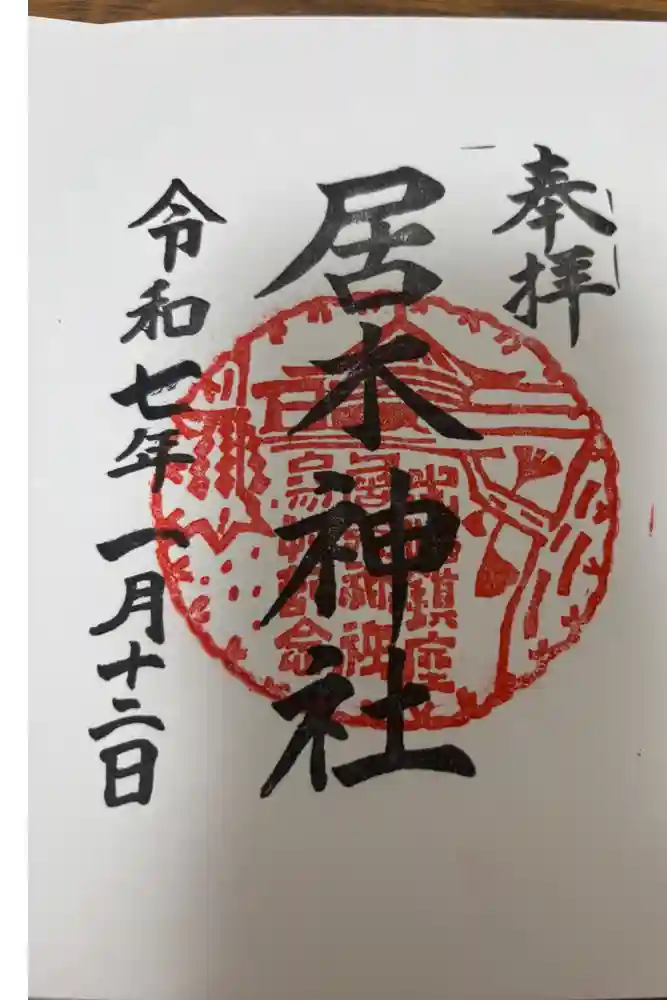 奉拝
居木神社
令和七年一月十二日